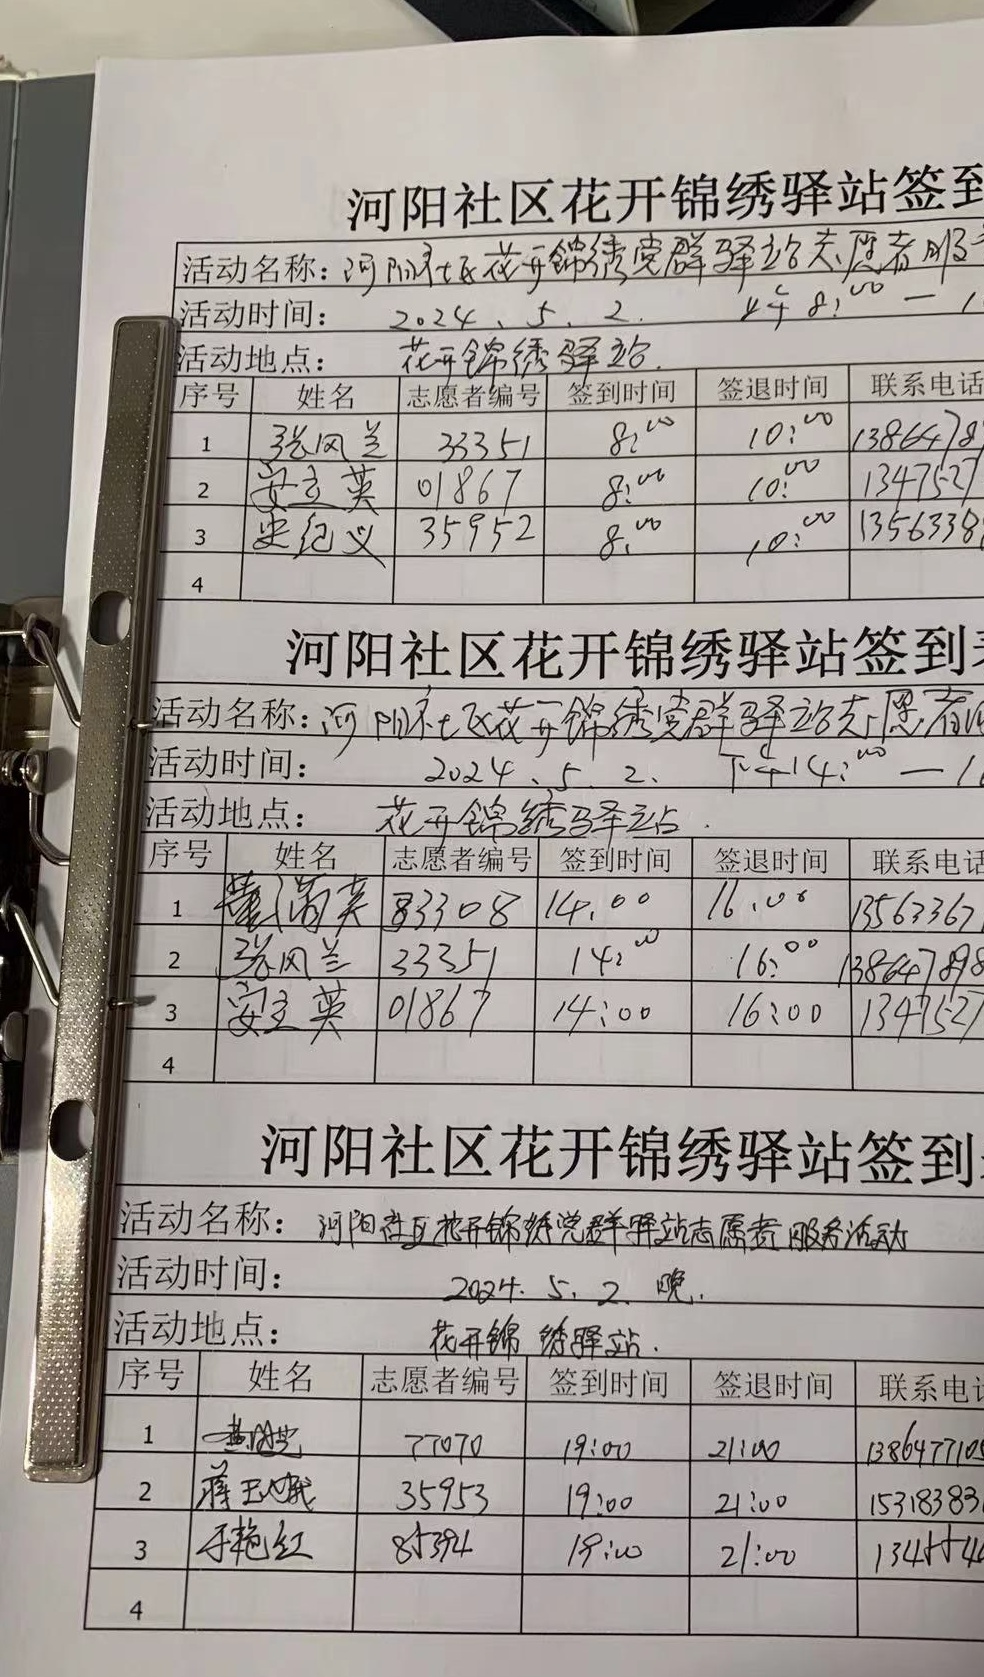 河阳社区花开锦绣驿站签到
活动名称：河阳社区花开锦绣党群驿站志愿者服
活动时间： 2024、5、2. 上午8:00 — 1
活动地点： 花开锦绣驿站.
序号 姓名 志愿者编号 签到时间 签退时间 联系电话
1 张风兰 33351 8:00 10:00 1386478
2 安立英 01867 8:00 10:00 1347527
3 史纪义 35952 8:00 10:00 1356338
4
河阳社区花开锦绣驿站签到
活动名称：河阳社区花开锦绣党群驿站志愿者
活动时间： 2024、5、2. 下午14:00 — 1
活动地点： 花开锦绣驿站.
序号 姓名 志愿者编号 签到时间 签退时间 联系电话
1 董满英 83308 14:00 16:00 1356336
2 张风兰 33351 14:00 16:00 138647898
3 安立英 01867 14:00 16:00 1347527
4
河阳社区花开锦绣驿站签到
活动名称：河阳社区花开锦绣党群驿站志愿者服务活动
活动时间： 2024.5.2.晚.
活动地点： 花开锦绣驿站.
序号 姓名 志愿者编号 签到时间 签退时间 联系电话
1 77070 19:00 21:00 138647710
2 蒋玉娥 35953 19:00 21:00 15318383
3 于艳红 85394 19:00 21:00 1345544
4